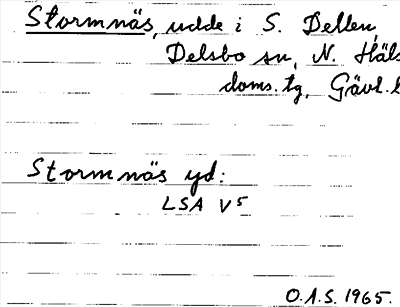 Stormnäs, udde i S. Dellen,
Delsbo sn, N. Häls
doms. tg, Gävl. l
Stormnäs yd:
LSA V5
O.A.S. 1965.